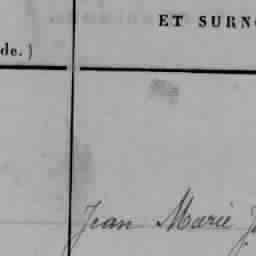 ET SURN
de.)
Jean Marie J